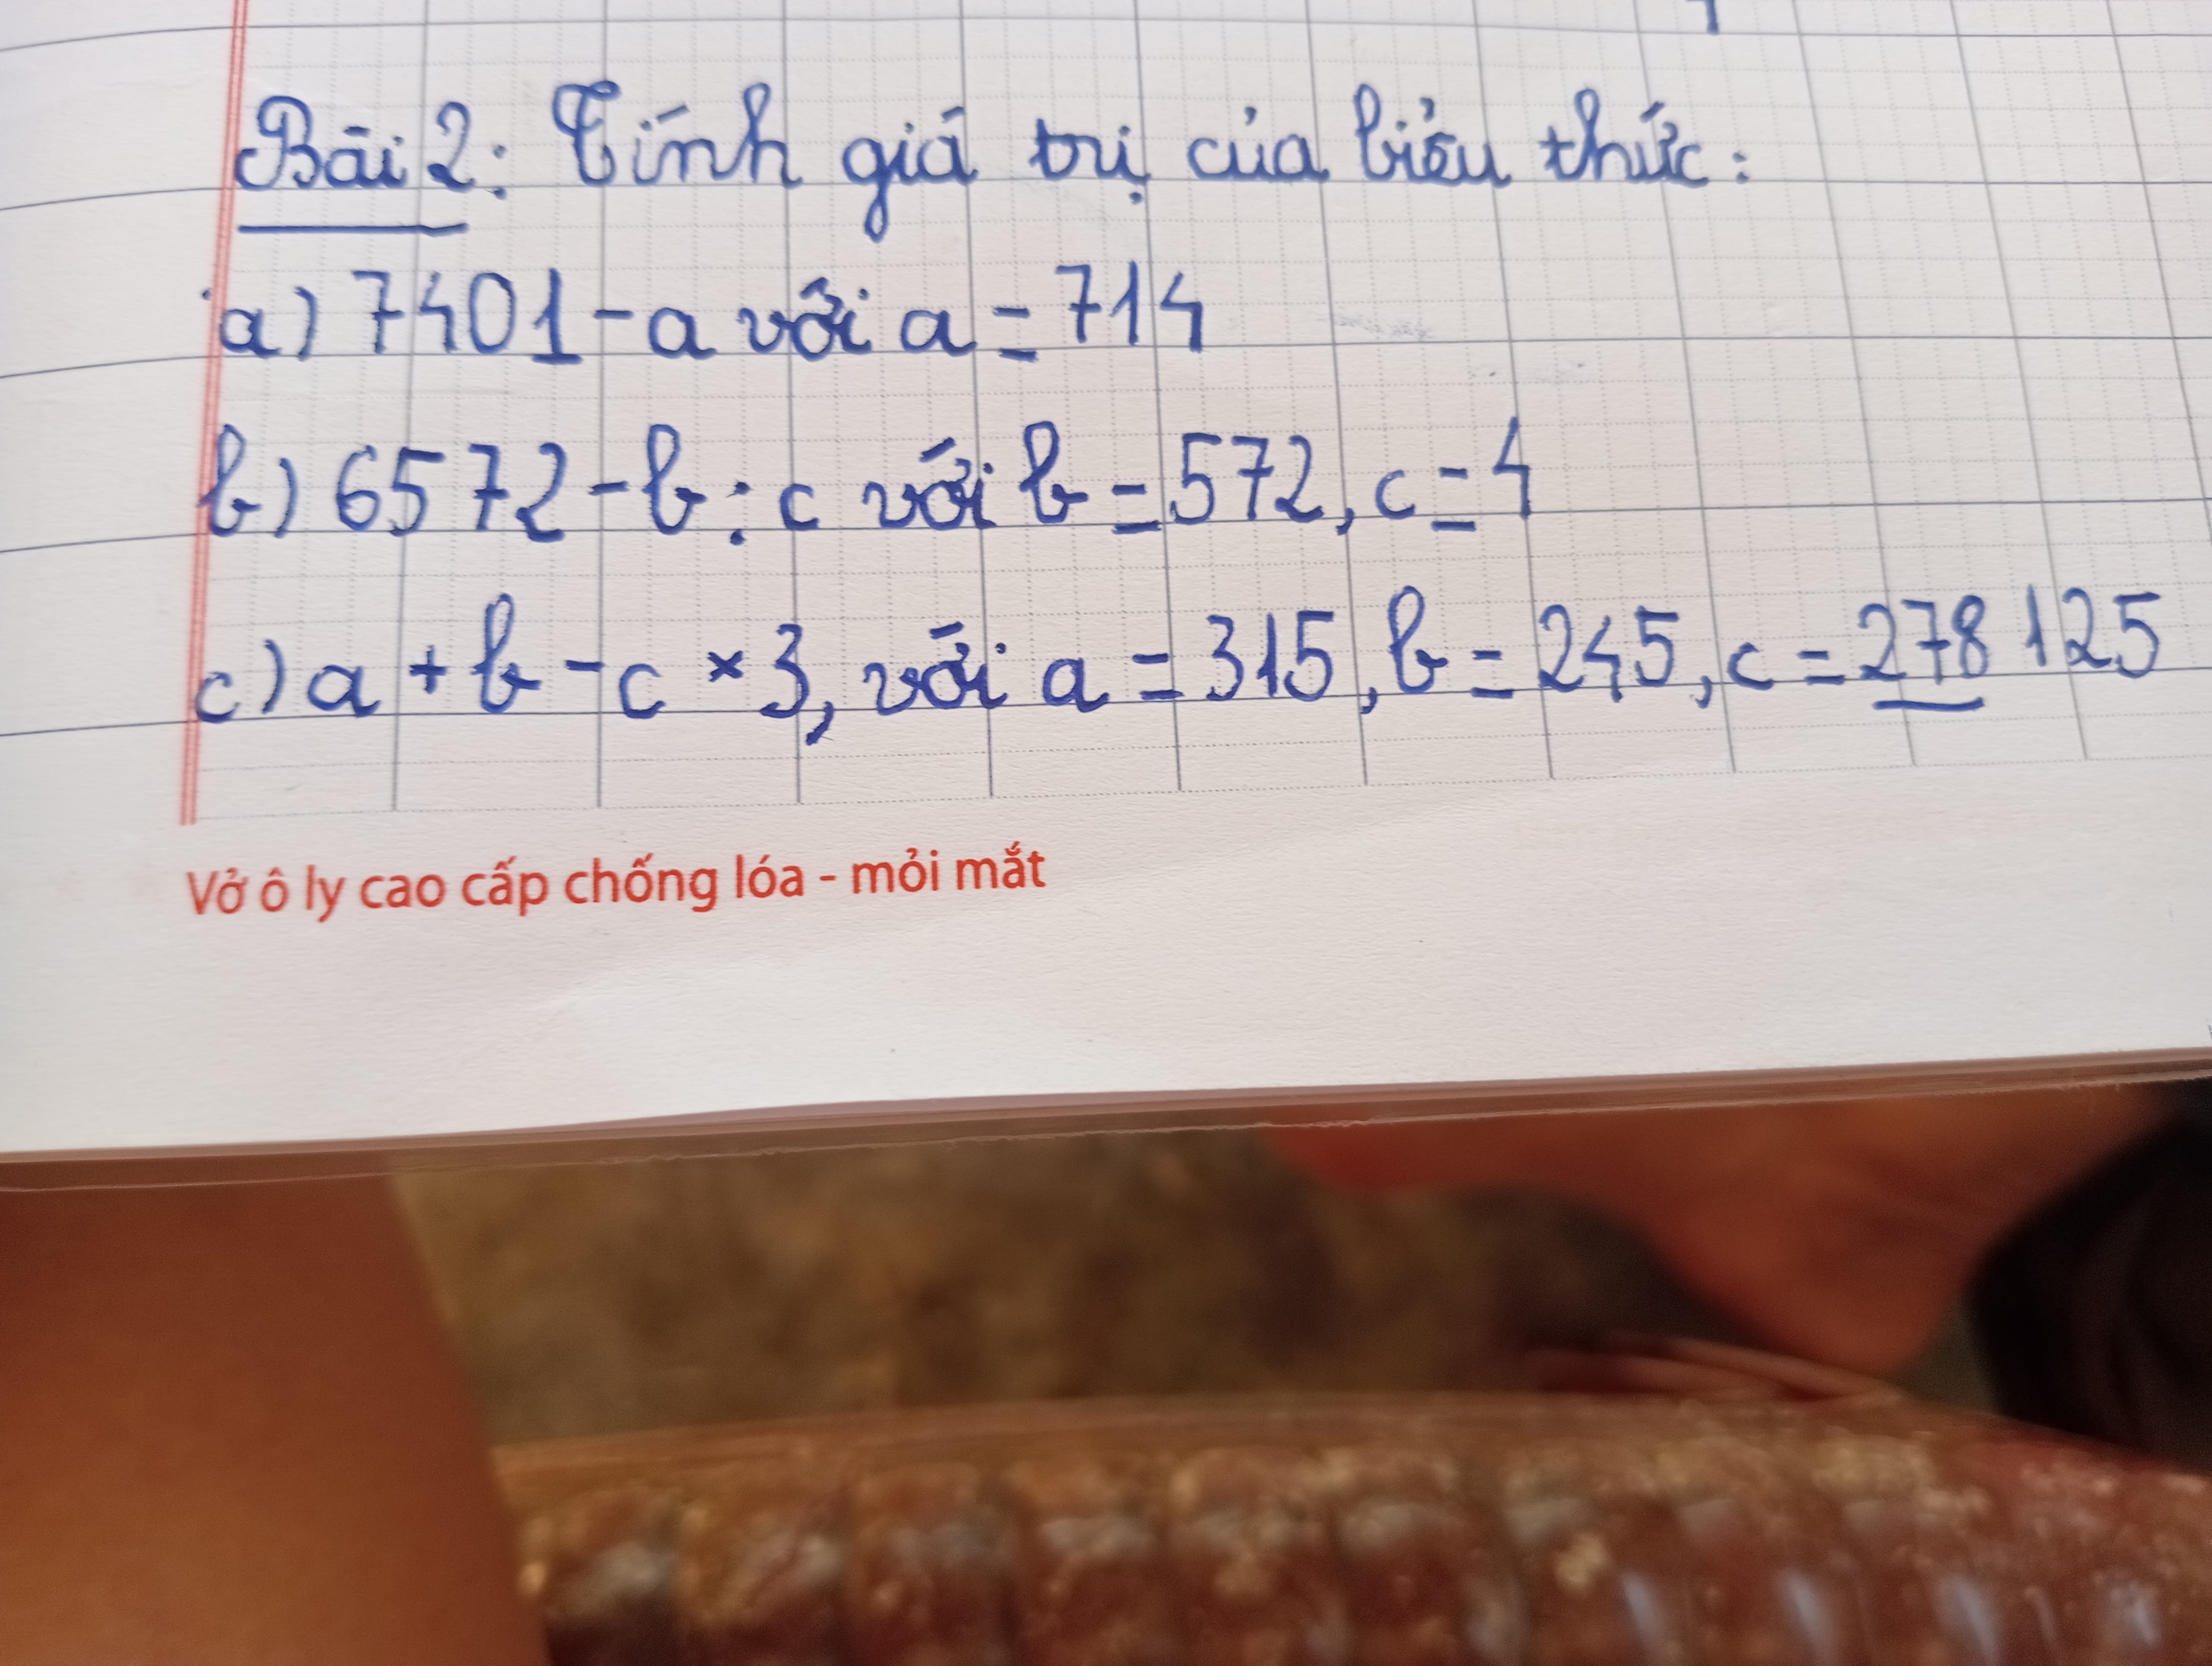 Bài 2: Tính giá trị của biểu thức:
a) 7401 - a với a = 714
b) 6572 - b : c với b = 572, c = 4
c) a + b - c × 3, với a = 315, b = 245, c = 278 125
Vở ô ly cao cấp chống lóa - mỏi mắt